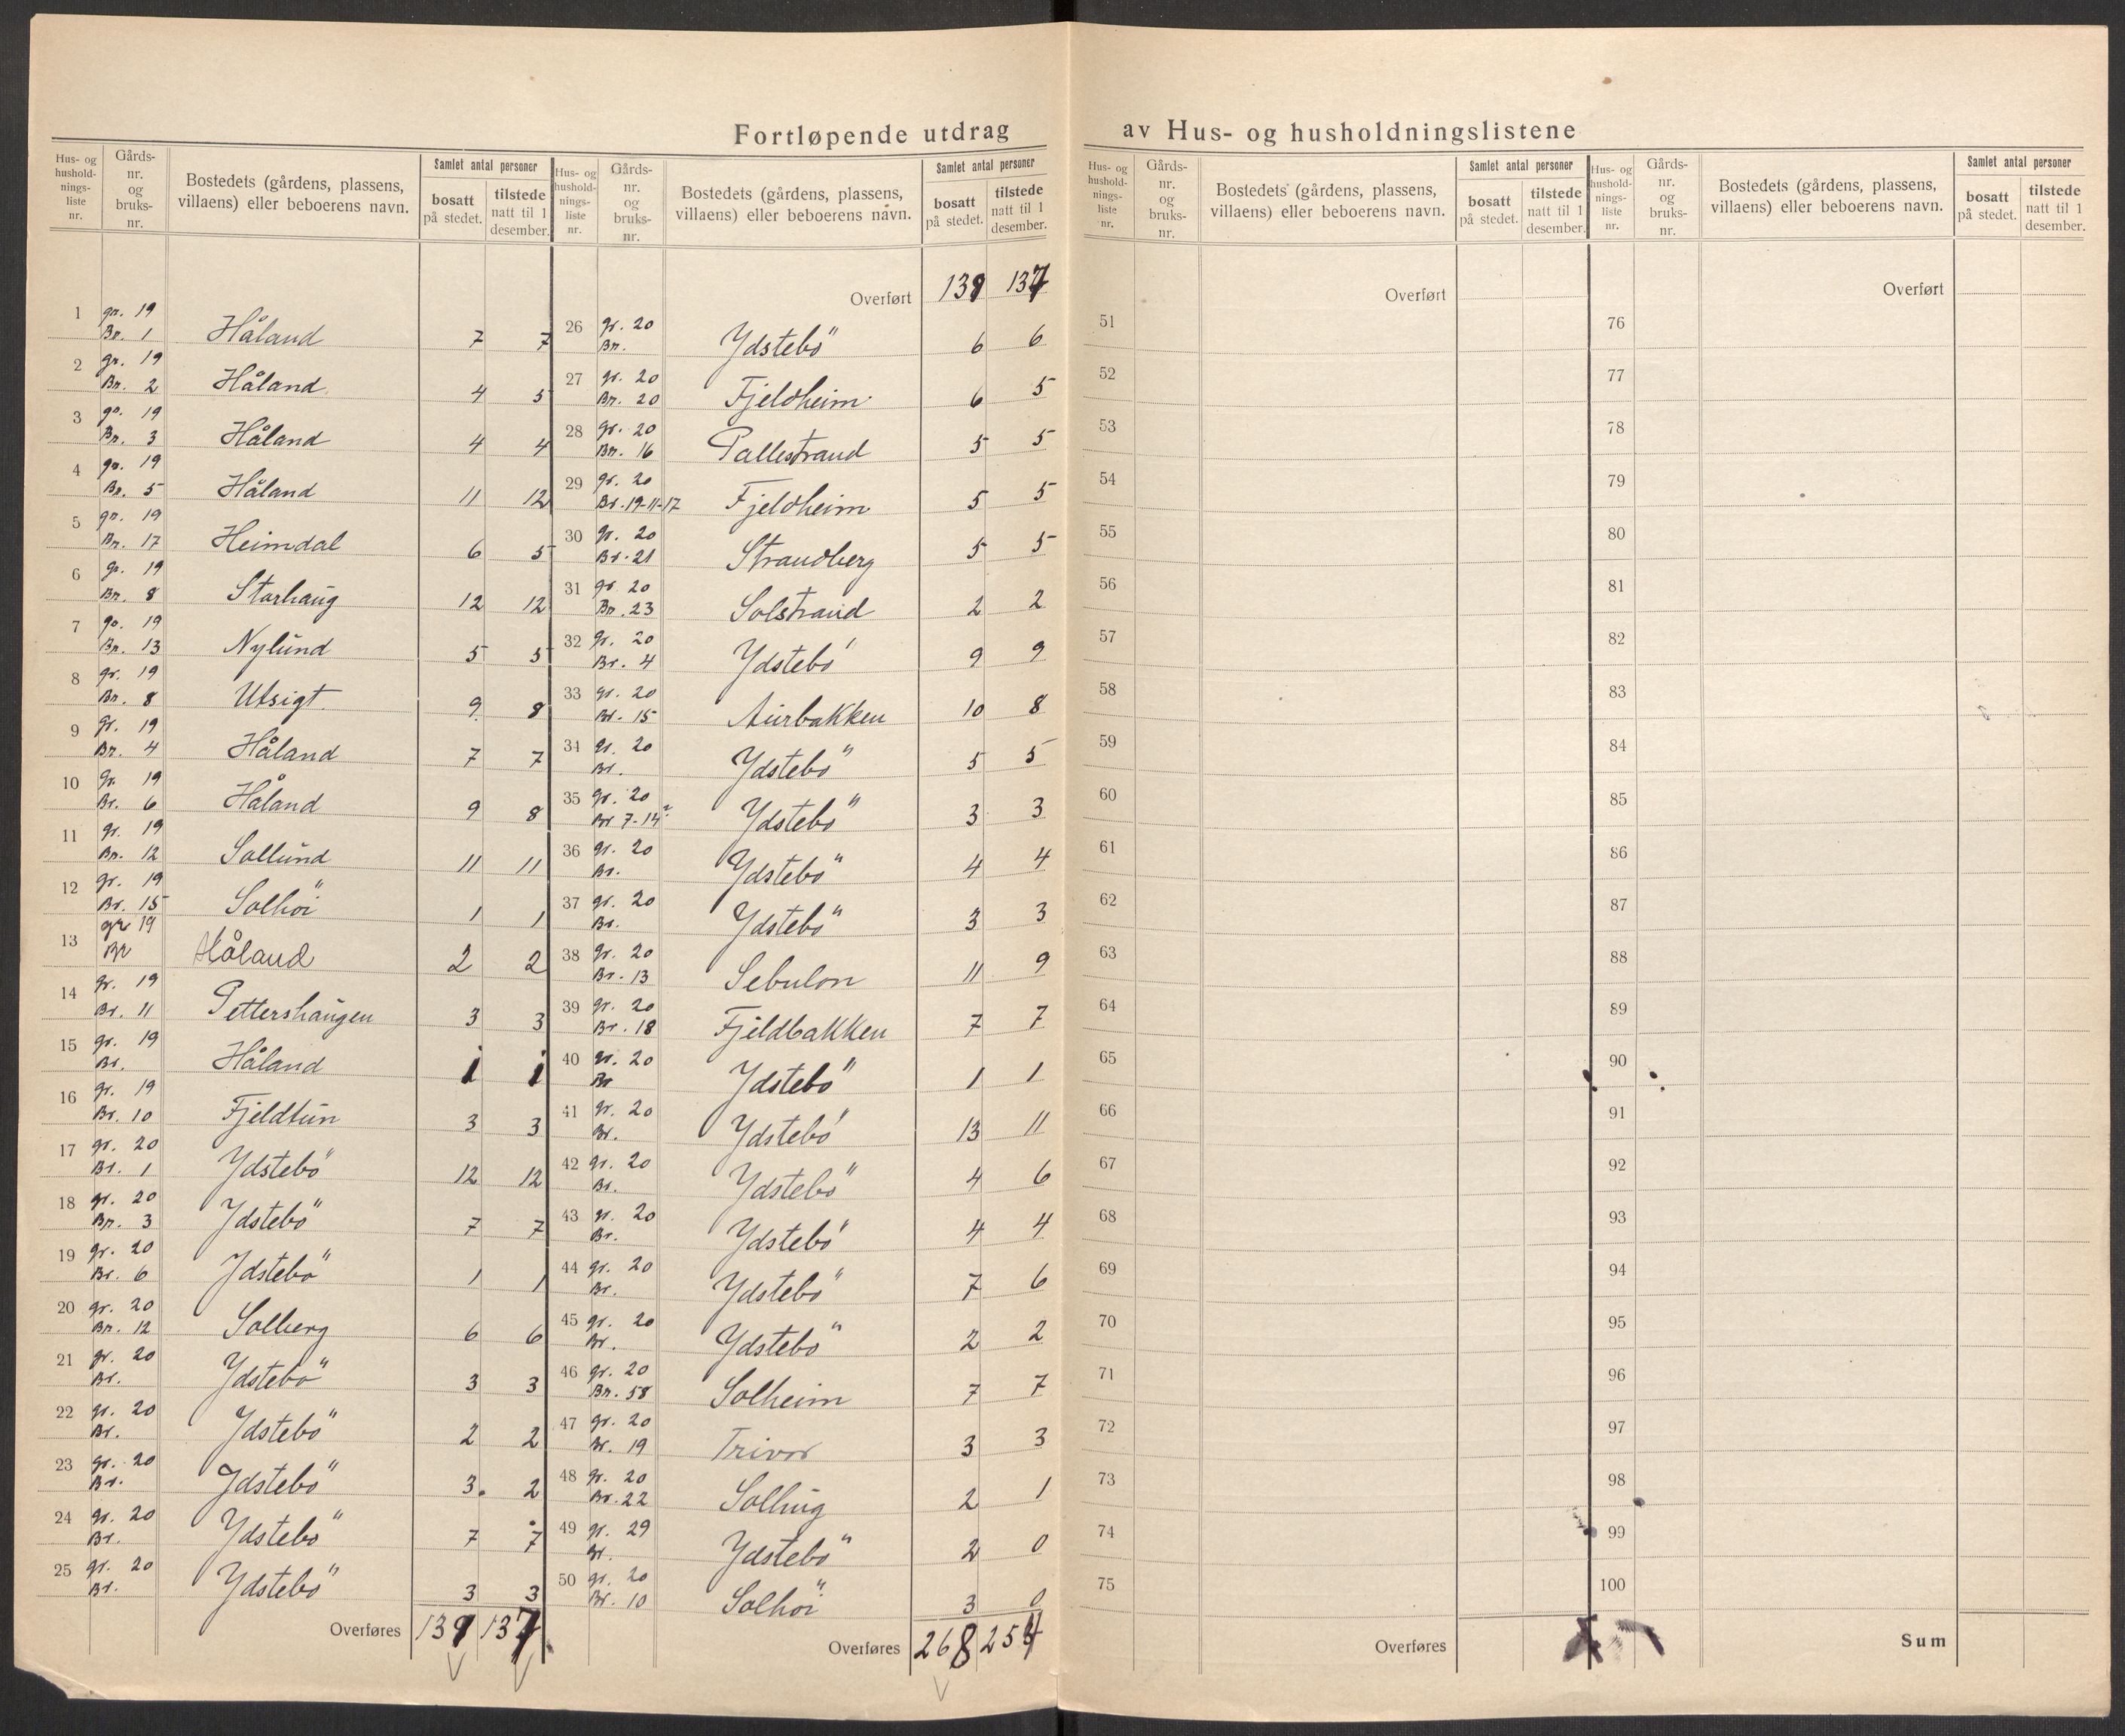 Fortløpende utdrag av Hus- og husholdningslistene
Hus- og husholdningsliste nr. | Gårds-nr. og bruks-nr. | Bostedets (gårdens, plassens, villaens) eller beboerens navn. | Samlet antal personer bosatt på stedet. | tilstede natt til 1 desember.
1 gr. 19 Br. 1 Håland 7 7
2 gr. 19 Br. 2 Håland 4 5
3 gr. 19 Br. 3 Håland 4 4
4 gr. 19 Br. 5 Håland 11 12
5 gr. 19 Br. 17 Heimdal 6 5
6 gr. 19 Br. 8 Storhaug 12 12
7 gr. 19 Br. 13 Nylund 5 5
8 gr. 19 Br. 8 Utsigt 9 8
9 gr. 19 Br. 4 Håland 7 7
10 gr. 19 Br. 6 Håland 9 8
11 gr. 19 Br. 12 Sollund 11 11
12 gr. 19 Br. 15 Solhöi 1 1
13 gr 19 Br Håland 2 2
14 gr. 19 Br. 11 Pettershaugen 3 3
15 gr. 19 Br. Håland 1 1
16 gr. 19 Br. 10 Fjeldtun 3 3
17 gr. 20 Br. 1 Ydstebö 12 12
18 gr. 20 Br. 3 Ydstebö 7 7
19 gr. 20 Br. 6 Ydstebö 1 1
20 gr. 20 Br. 12 Solberg 6 6
21 gr. 20 Br. Ydstebö 3 3
22 gr. 20 Br. Ydstebö 2 2
23 gr. 20 Br. Ydstebö 3. 2
24 gr. 20 Br. Ydstebö 7 7
25 gr. 20 Br. Ydstebö 3 3
Overføres 139 137
Hus- og husholdningsliste nr. | Gårds-nr. og bruks-nr. | Bostedets (gårdens, plassens, villaens) eller beboerens navn. | Samlet antal personer bosatt på stedet. | tilstede natt til 1 desember.
Overført 139 137
26 gr. 20 Br. Ydstebö 6 6
27 gr. 20 Br. 20 Fjeldheim 6 5
28 gr. 20 Br. 16 Pallestrand 5 5
29 gr. 20 Br. 19-11-17 Fjeldheim 5 5
30 gr. 20 Br. 21 Strandberg 5 5
31 gr. 20 Br. 23 Solstrand 2 2
32 gr. 20 Br. 4 Ydstebö 9 9
33 gr. 20 Br. 15 Aurbakken 10 8
34 gr. 20 Br. Ydstebö 5 5
35 gr. 20 Br 7-14 Ydstebö 3 3
36 gr. 20 Br. Ydstebö 4 4
37 gr. 20 Br. Ydstebö 3 3
38 gr. 20 Br. 13 Sebulon 11 9
39 gr. 20 Br. 18 Fjeldbakken 7 7
40 gr. 20 Br Ydstebö 1 1
41 gr. 20 Br. Ydstebö 13 11
42 gr. 20 Br. Ydstebö 4 6
43 gr. 20 Br. Ydstebö 4 4
44 gr. 20 Br. Ydstebö 7 6
45 gr. 20 Br. Ydstebö 2 2
46 gr. 20 Br. 58 Solheim 7 7
47 gr. 20 Br. 19 Trivor 3 3
48 gr. 20 Br. 22 2 1
49 gr. 29 Br. Ydstebö 2 0
50 gr. 20 Br. 10 Solhöi 3 0
Overføres 268 254
Hus- og husholdningsliste nr. | Gårds-nr. og bruks-nr. | Bostedets (gårdens, plassens, villaens) eller beboerens navn. | Samlet antal personer bosatt på stedet. | tilstede natt til 1 desember.
Overført
51
52
53
54
55
56
57
58
59
60
61
62
63
64
65
66
67
68
69
70
71
72
73
74
75
Overføres
Hus- og husholdningsliste nr. | Gårds-nr. og bruks-nr. | Bostedets (gårdens, plassens, villaens) eller beboerens navn. | Samlet antal personer bosatt på stedet. | tilstede natt til 1 desember.
Overført
76
77
78
79
80
81
82
83
84
85
86
87
88
89
90
91
92
93
94
95
96
97
98
99
100
Sum